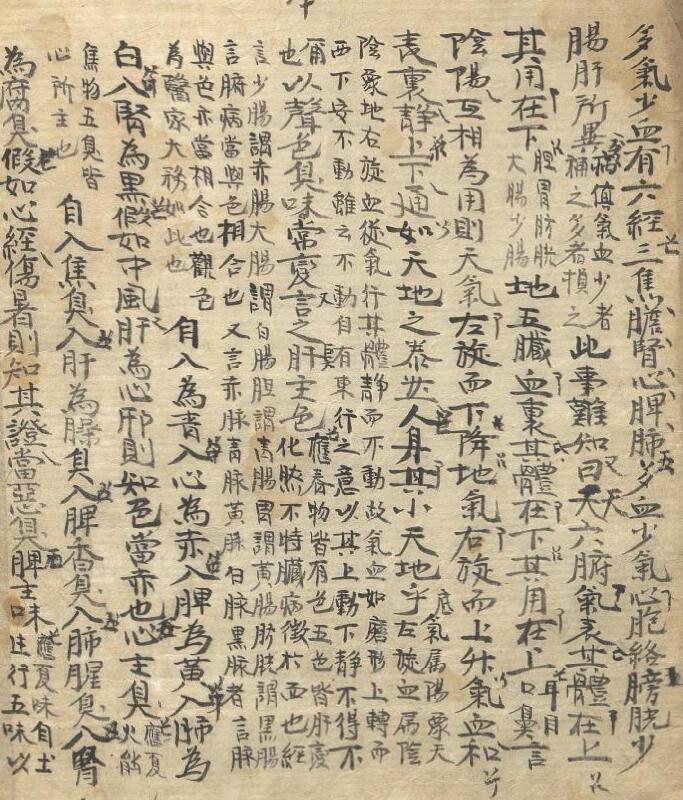 多氣少血有六經三焦膽腎心脾肺多血少氣心胞絡膀胱少
腸肝所異
氣血少者
補之多者損之
此事難知曰天六腑氣表其體在上
其用在下
胆胃膀胱
大腸少腸
地五臟血裏其體在下其用在上
耳目
口鼻言
陰陽互相為用則天氣左旋而下降地氣右旋而上升氣血和
表裏靜上下通如天地之泰世人身其小天地乎
氣属陽象天
左旋血属陰
陰象地右旋血從氣行其體靜而不動故氣血如磨形上轉而
西下安不動雖云不動自有東行之意以其上動下静不得不
爾
也
以聲色臭味常変言之肝主色
應春物皆有色五色皆肝变
化然不特臟病徵於面也経
言少腸謂赤腸大腸謂白腸胆謂青腸胃謂黄腸膀胱謂黒腸
言腑病當與色相合也又言赤脉青脉黄脉白脉黒脉者言脉
與色亦當相合也觀色
為醫家大務如此也
自入為青入心為赤入脾為黄入肺為
白入腎為黑假如中風肝為心邪則知色當赤也心主臭
應夏
火能
焦物五臭皆
心所主也
自入焦臭入肝為臊臭入脾香臭入肺腥臭入腎
為腐臭假如心經傷暑則知其證當惡臭脾主味
應夏味自土
往行五味以